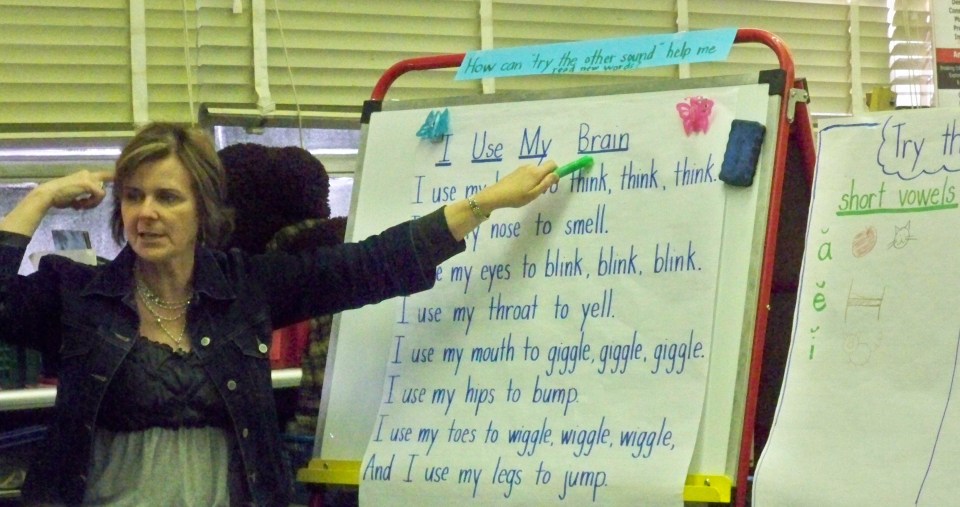 How can "try the other sound" help me
read new words?
I Use My Brain
I use my to think, think, think.
my nose to smell.
my eyes to blink, blink, blink.
I use my throat to yell.
I use my mouth to giggle, giggle, giggle.
I use my hips to bump.
I use my toes to wiggle, wiggle, wiggle,
And I use my legs to jump.
Try th
short vowels
ă
ĕ
ĭ